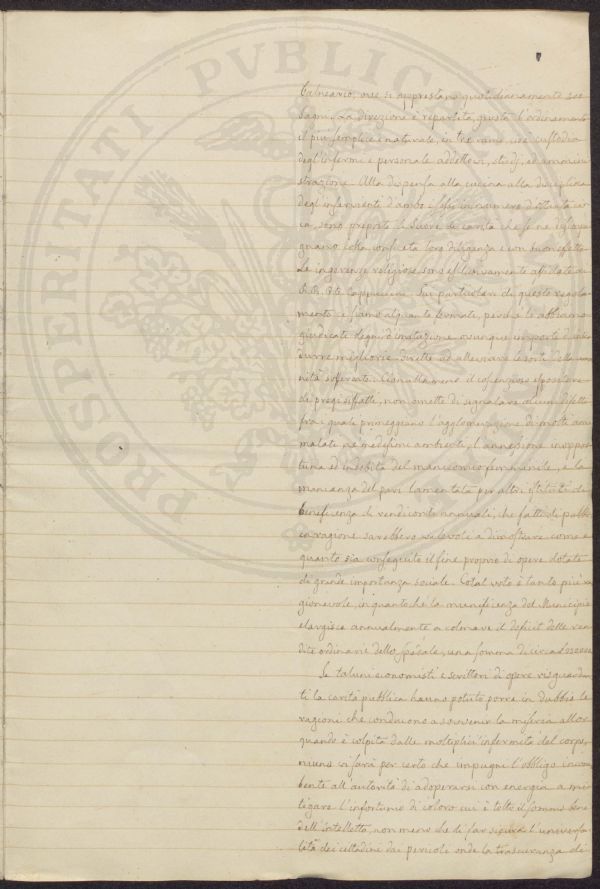 PROSPERITATI PVBLICAE
balneario, ove si apprestano quotidianamente
bagni. La direzione è repartita, giusta l'ordinamento
il più semplice e naturale, in tre rami, cioè custodia
degl'infermi e personale addettovi, studj, ed ammini
strazione. Alla dispensa alla cucina alla disciplina
degl'inservienti d'ambo i sessi in numero d'ottanta cir
ca, sono preposte le Suore di carità che se ne
gnano colla consueta loro diligenza e con buon effetto.
Le ingerenze religiose sono esclusivamente affidate ai
R.R. P.P. Cappuccini. Sui particolari di questo regola
mento ci siamo alquanto fermati, perchè le abbiamo
giudicate degni d'imitazione, ovunque importi d'intro
durre migliorie dirette ad alleviare le sorti della uma
nità sofferente. Ciò nulla meno il coscienzioso espositore
di pregi siffatti, non omette di segnalare alcun difetto
fra i quali primeggiano l'agglomerazione di molti am
malati ne' medesimi ambienti, l'annessione inoppor
tuna ed indebita del manicomio femminile, e la
mancanza del pari lamentata per altri istituti di
beneficenza di rendiconti annuali, che fatti di pubbli
ca ragione sarebbero valevoli a dimostrare come e
quanto sia conseguito il fine proprio di opere dotate
di grande importanza sociale. Cotal voto è tanto più ra
gionevole, in quanto chè la munificenza del Municipio
elargisce annualmente a colmare il deficit delle ren
dite ordinarie dello Spedale, una somma di circa
Se taluni economisti e scrittori di opere risguardan
ti la carità pubblica hanno potuto porre in dubbio le
ragioni che conducono a sovvenir la miseria allor
quando è colpita dalle moltiplici infermità del corpo,
niuno vi sarà per certo che impugni l'obbligo incom
bente all'autorità di adoperarsi con energia a mi
tigare l'infortunio di coloro cui è tolto il sommo bene
dell'intelletto, non meno che di far sicura l'universa
lità dei cittadini dai pericoli onde la trascuranza di